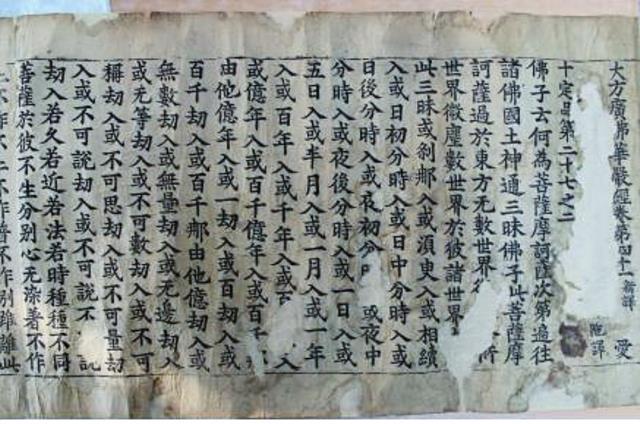 大方廣佛華嚴經卷第四十一 新譯
陁譯
十定品第二十七之二
佛子云何為菩薩摩訶薩次第遍往
諸佛國土神通三昧佛子此菩薩摩
訶薩過於東方无數世界 所
世界微塵數世界於彼諸世界
此三昧或刹那入或湏臾入或相續
入或日初分時入或日中分時入或
日後分時入或夜初分 或夜中
分時入或夜後分時入或一日入或
五日入或半月入或一月入或一年
入或百年入或千年入或 入
或億年入或百千億年入或百千
由他億年入或一劫入或百劫入或
百千劫入或百千那由他億劫入或
無數劫入或無量劫入或无邊劫入
或无等劫入或不可數劫入或不可
稱劫入或不可思劫入或不可量劫
入或不可說劫入或不可說不 說
劫入若久若近若法若時種種不同
菩薩於彼不生分別心无染著不作
二不作不二不作普不作別雖離此